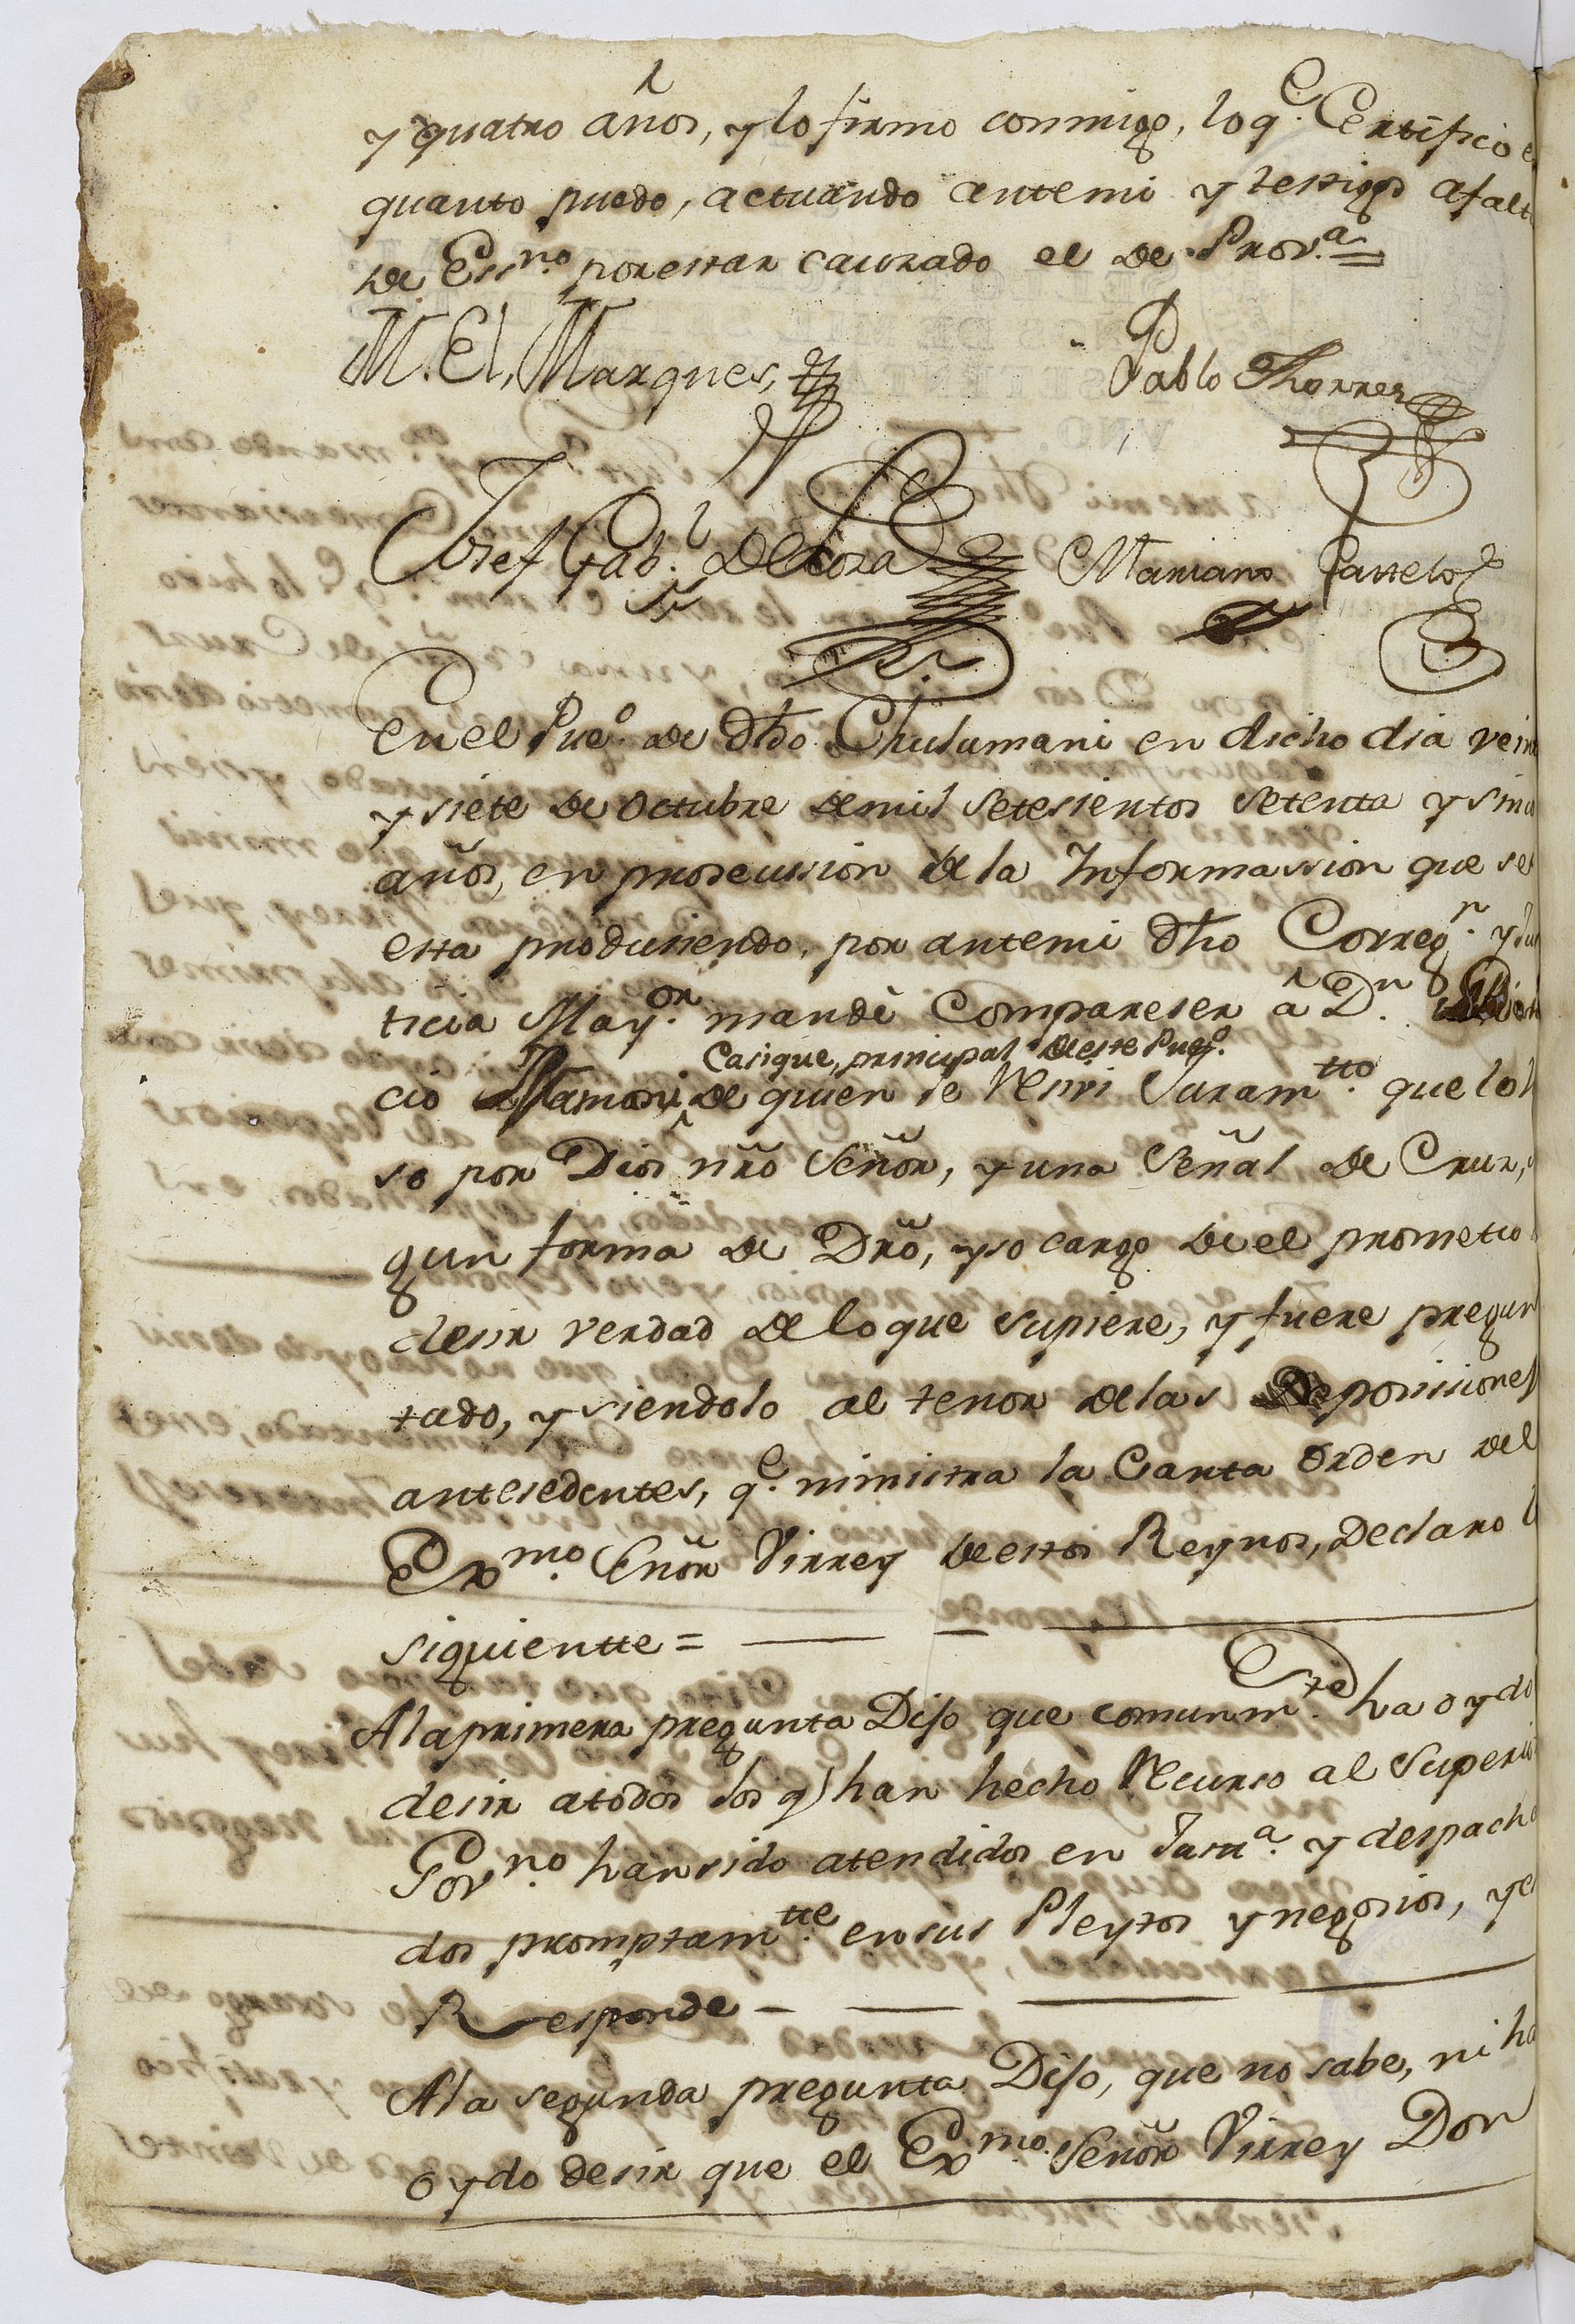 y quatro años, y lo firmo conmigo, lo q.e Certifico e
quanto puedo, actuando antemi y testigos afalt
de Ess.no por estar causado el de Prov.a =
M. El, Marques,
Pablo Thorres
Josef Gab.l De Loza
Mariano Castelo
En el Pue.o de dho Chulumani en dicho dia vein
y siete de Octubre de mil setesientos setenta y sinc
años, en prosecussion de la Informassion que se
esta produsiendo, por antemi dho Correg.r y Jus
ticia May.or mandè Compareser â D.n
Casique, principal de este Pue.o
cio Mamani, de quien le Resivi Juram.tto que lo h
so por Dios nrõ Señor, y una Señal de Cruz,
gun forma de Drõ, y so cargo de el prometio
desir verdad de lo que supiere, y fuere pregun
tado, y siendolo al tenor de las Deposissiones
antesedentes, q.e ministra la Carta Orden del
Ex.mo Señor Virrey de estos Reynos, Declaro l
siguientte =
A la primera pregunta Dijo que comunm.te ha oydo
desir atodos los q han hecho Recurso al Superi
Gov.no han sido atendidos en Just.a y despacha
dos promptam.tte en sus Pleytos y negosios, y e
Responde
A la segunda pregunta Dijo, que no sabe, ni ha
oydo desir que el Ex.mo Señor Virrey Don